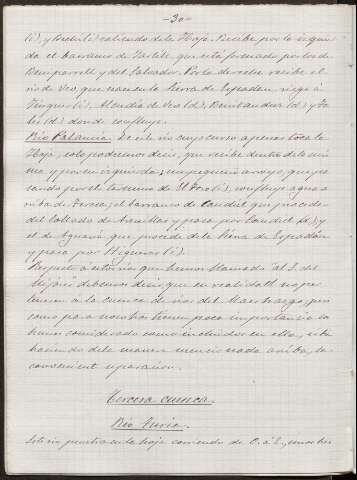 -30-
(i), y Bechí (i) saliendo de la Hoja. Recibe por la izquier
da el barranco de Tartete, que está formado por los de
Beniparrell y del Salvador. Por la derecha recibe el
rio de Veo, que nace en la Sierra de Espadan, riega á
Tinguer (i), Alcudia de Veo (d), Benitandus (d) y Ta
les (d) donde confluye.
Rio Palancia. De este rio cuyo curso apenas toca la
Hoja, solo podremos decir, que recibe dentro de la mis
ma y por su izquierda; un pequeño arroyo, que pa
sando por el termino de El Toro (i), confluye aguas a
rriba de Jerica; el barranco de Caudiel que procede
del Collado de Arenillas y pasa por Caudiel (d), y
el de Aguaria que procede de la Sierra de Espadán
y pasa por Higueras (i).
Respecto á este rio que hemos llamado "al S. del
Mijares" debemos decir que en realidad no per
tenecen á la cuenca el rio del Maestrazgo, pero
como para nosotros tienen poca importancia lo
hemos considerado como incluidos en ella,
haciendo de la manera mencionada arriba, la
conveniente separacion.
Tercera cuenca.
Rio Turia.
Solo se muestra en la hoja corriendo de O. á E., unos